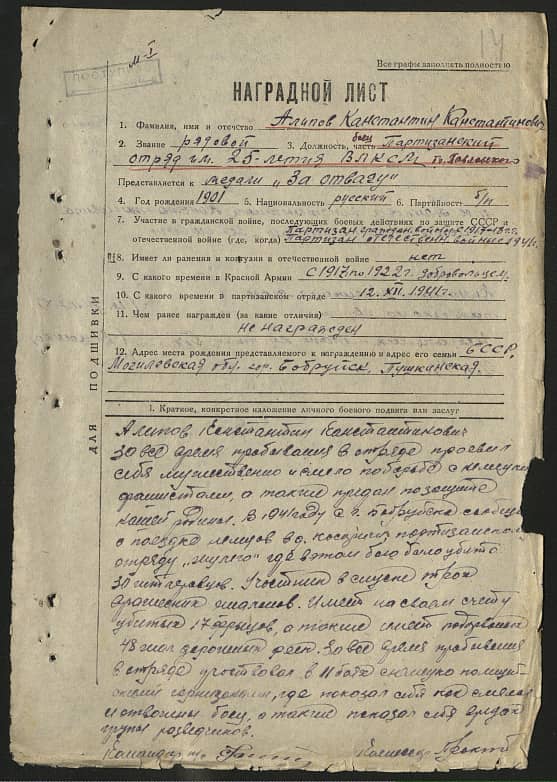 14
М-I
Все графы заполнять полностью
НАГРАДНОЙ ЛИСТ
1. Фамилия, имя и отчество Алипов Канстантин Канстантинович
2. Звание рядовой 3. Должность, часть боец Партизанский
отряд им. 25-летия ВЛКСМ
Представляется к медали "За отвагу"
4. Год рождения 1901 5. Национальность русский 6. Партийность б/п
7. Участие в гражданской войне, последующих боевых действиях по защите СССР и
Партизан граждан. войны с 1917-18 г.
отечественной войне (где, когда) Партизан отечествен. войны с 1941 г.
8. Имеет ли ранения и контузии в отечественной войне нет
9. С какого времени в Красной Армии с 1917 по 1922 г. добровольцем.
10. С какого времени в партизанском отряде 12. XII. 1941 г.
11. Чем ранее награжден (за какие отличия)
не награжден
12. Адрес места рождения представляемого к награждению и адрес его семьи БССР,
Могилевская обл. гор. Бобруйск, Пушкинская.
ДЛЯ ПОДШИВКИ
1. Краткое, конкретное изложение личного боевого подвига или заслуг
Алипов Константин Константинович
За все время пребывания в отряде проевил
себя мужественно и смело по борьбе с немецкими
фашистами, а также предан по защите
нашей родины. В 1941 году с г. Бобруйска сообщил
о поездке немцев в д. партизанском
отряду где в этом бою было убито
Участник в спуске трох
вражеских эшалонов. Имеет на своем счету
убитых 17 фрицов, а также имеет подорваных
48 За все время пребывания
в отряде участвовал в 11 боях с немецко полицей-
скими гарнизонами, где показал себя как смелый
и отважный боец, а также показал себя в рядах
групы разведчиков.
Командир Комиссар